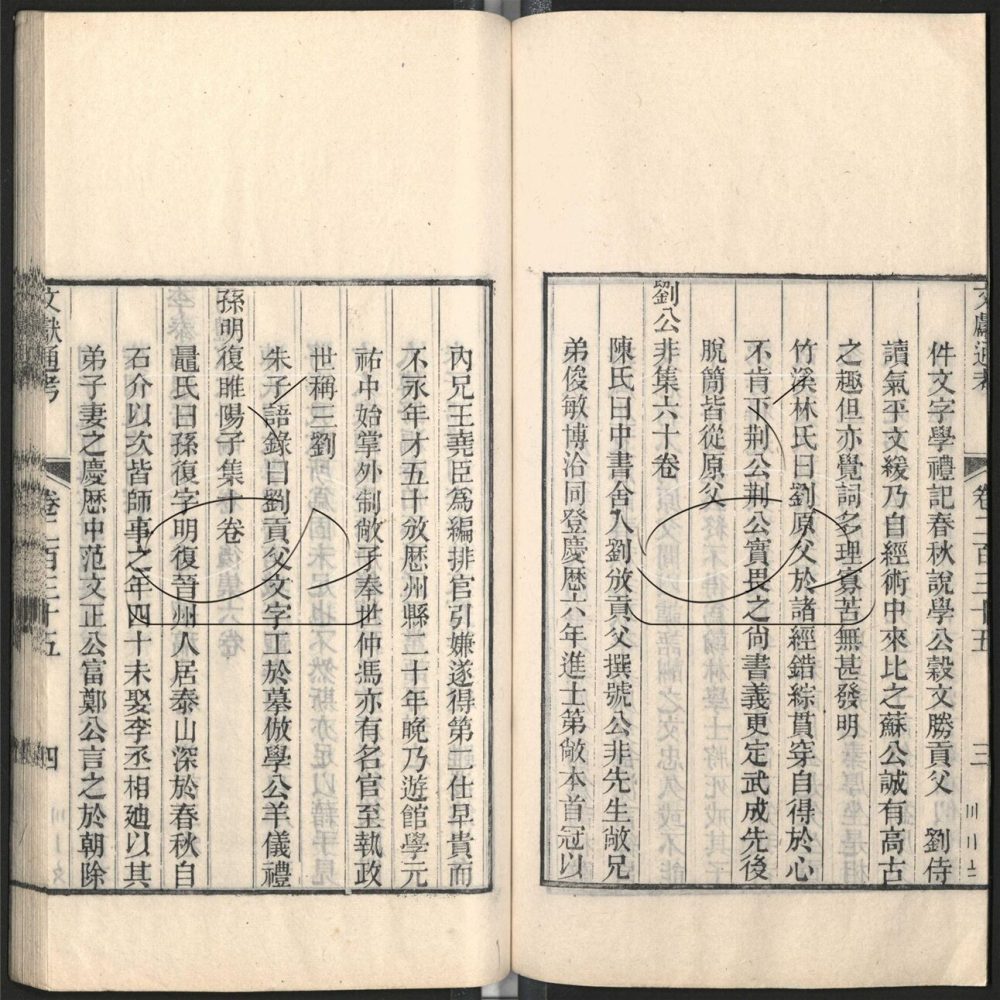 文獻通考 卷二百三十五 三
件文字學禮記春秋說學公穀文勝貢父 劉侍
讀氣平文緩乃自經術中來比之蘇公誠有高古
之趣但亦覺詞多理寡苦無甚發明
竹溪林氏曰劉原父於諸經錯綜貫穿自得於心
不肯下荆公荆公實畏之尚書義更定武成先後
脫簡皆從原父
劉公非集六十卷
陳氏曰中書舍人劉攽貢父撰號公非先生敞兄
弟俊敏博洽同登慶歷六年進士第敞本首冠以
內兄王堯臣爲編排官引嫌遂得第二仕早貴而
不永年才五十攽歷州縣二十年晚乃遊館學元
祐中始掌外制敞子奉世仲馮亦有名官至執政
世稱三劉
朱子語錄曰劉貢父文字工於摹倣學公羊儀禮
孫明復睢陽子集十卷
鼂氏曰孫復字明復晉州人居泰山深於春秋自
石介以次皆師事之年四十未娶李丞相廸以其
弟子妻之慶歷中范文正公富鄭公言之於朝除
文獻通考 卷二百三十五 四